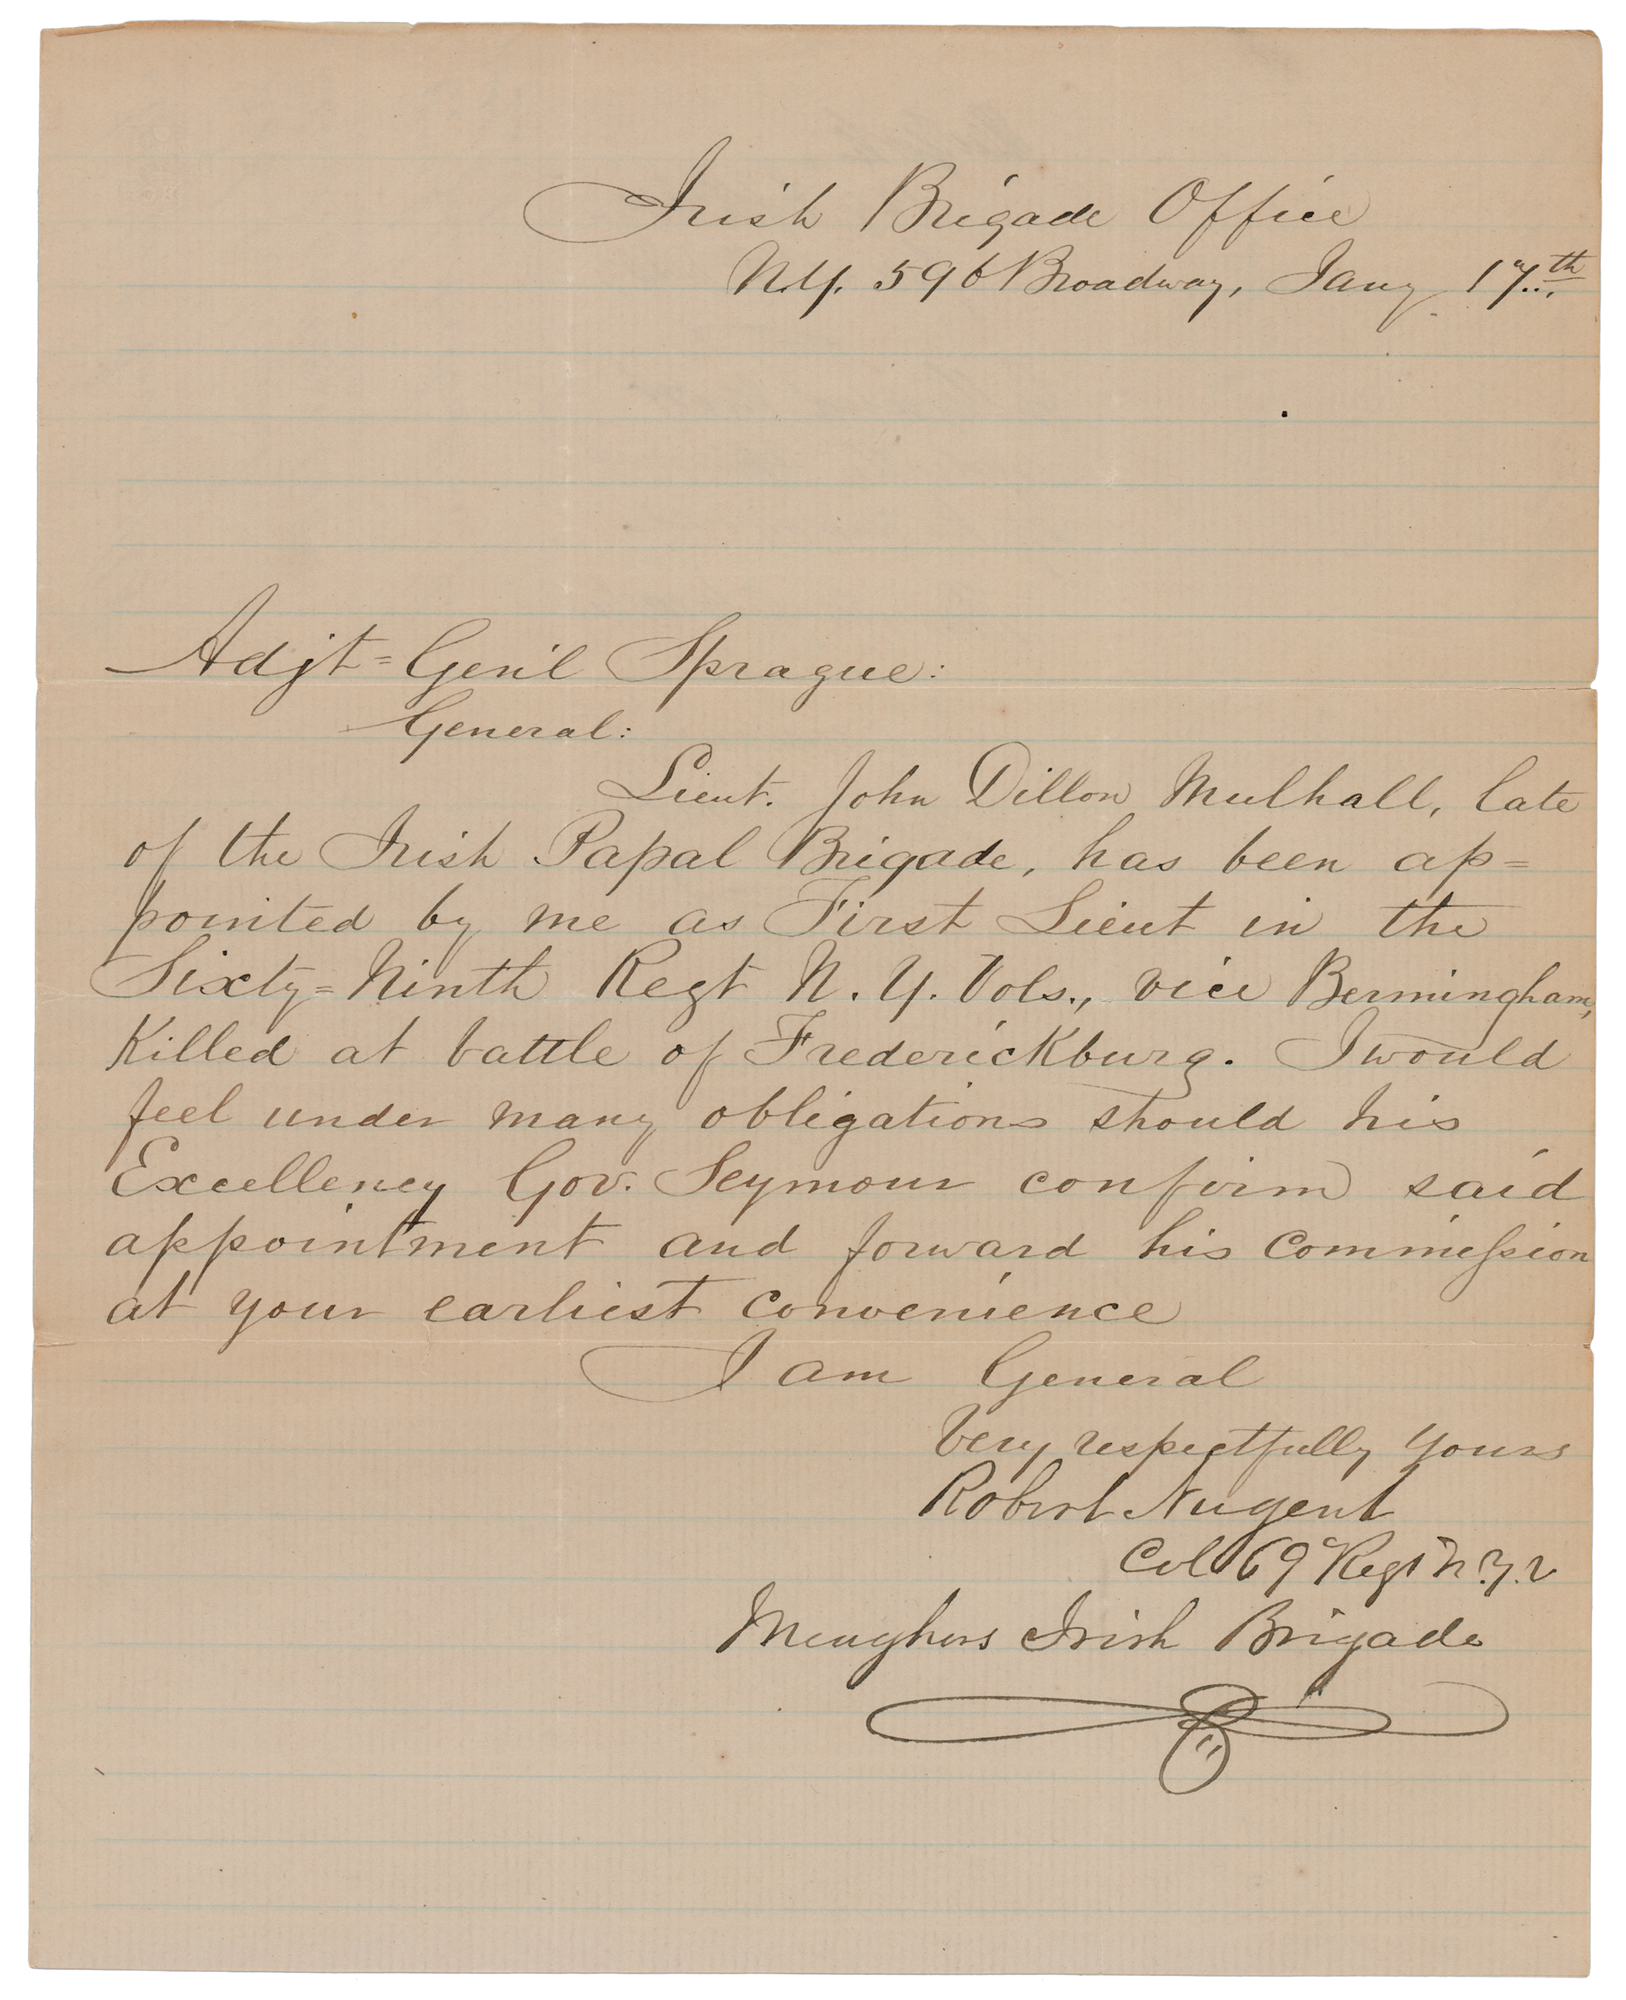 Irish Brigade Office
N.Y. 596 Broadway, Jany 17th
Adjt=Genl Sprague:
General:
Lieut. John Dillon Mulhall, late
of the Irish Papal Brigade, has been ap=
pointed by me as First Lieut in the
Sixty=Ninth Regt N.Y. Vols., vice Bermingham,
Killed at battle of Frederickburg. I would
feel under many obligations should his
Excellency Gov. Seymour confirm said
appointment and forward his Commission
at your earliest convenience
I am General
Very respectfully Yours
Robert Nugent
Col 69 Regt N.Y.V
Meaghers Irish Brigade